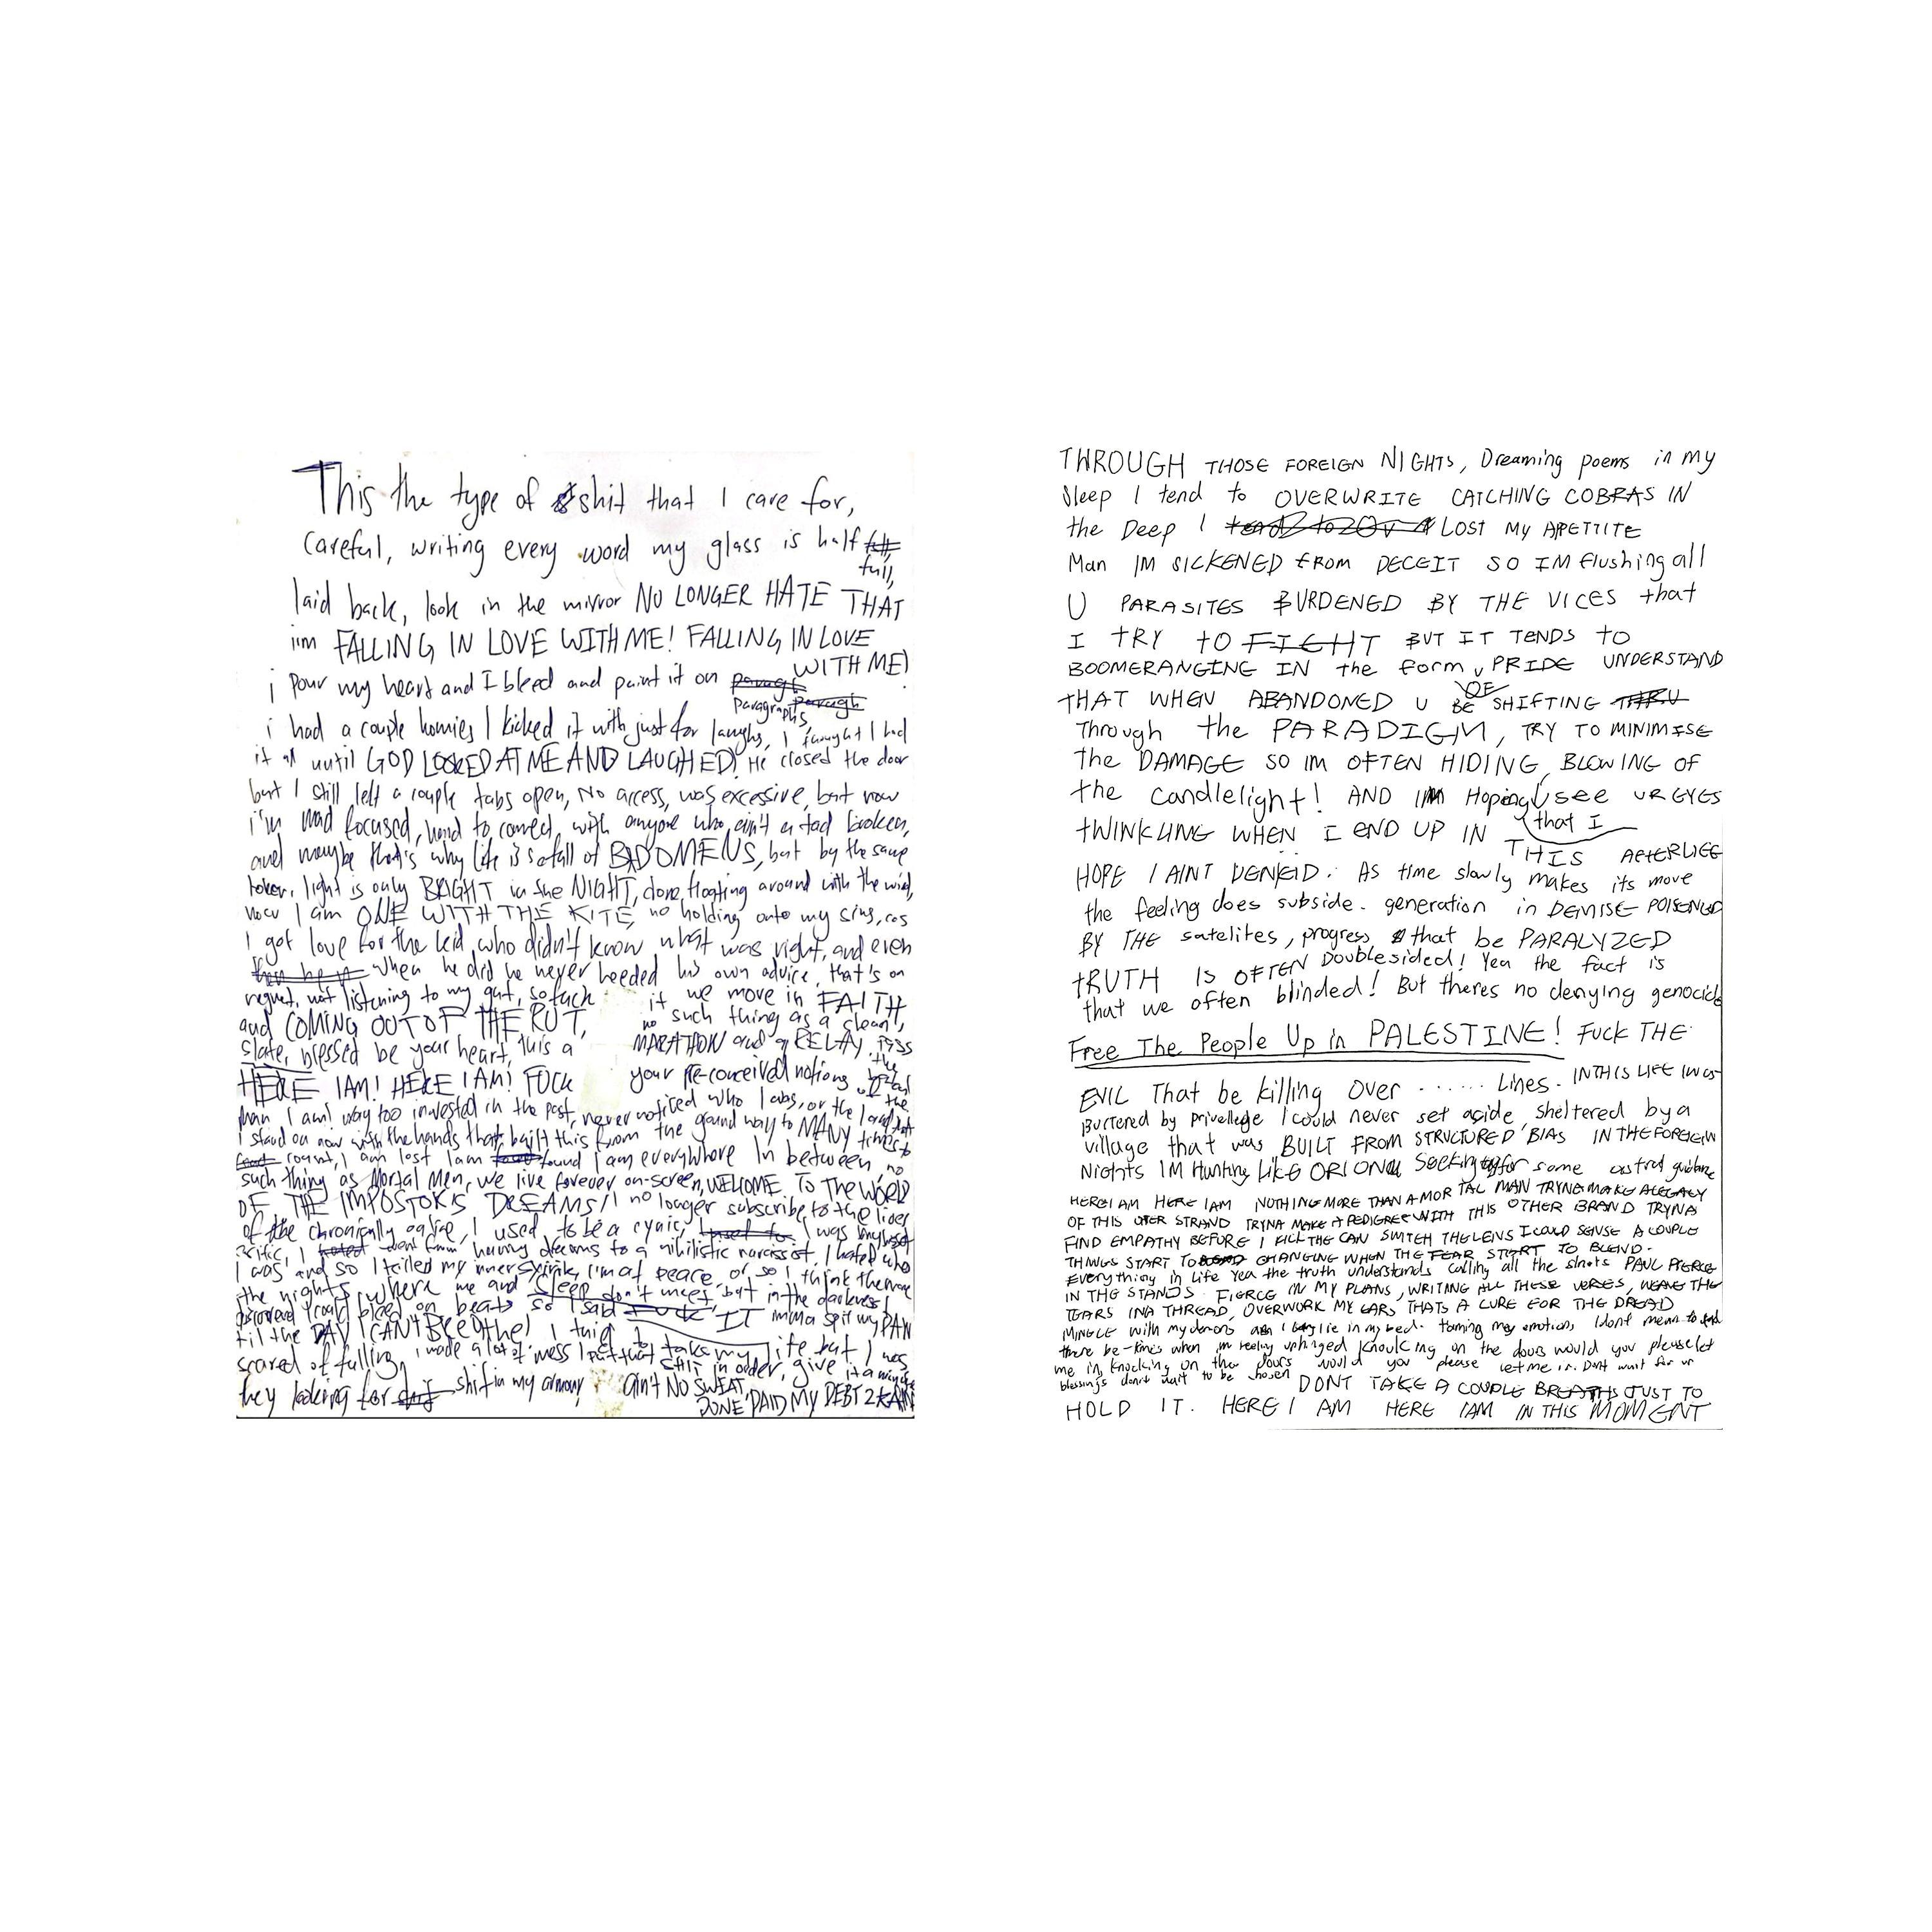 This the type of shit that I care for,
careful, writing every word my glass is half
full,
laid back, look in the mirror NO LONGER HATE THAT
i'm FALLING IN LOVE WITH ME! FALLING IN LOVE
WITH ME!
i pour my heart and I bleed and paint it on
paragraphs,
i had a couple homies I kicked it with just for laughs, I thought I had
it all until GOD LOOKED AT ME AND LAUGHED! He closed the door
but I still left a couple tabs open, No access, was excessive, but now
i'm mad focused, hard to connect with anyone who ain't a tad broken,
and maybe that's why life is so full of BAD OMENS, but by the same
token, light is only BRIGHT in the NIGHT, done floating around with the wind,
now I am ONE WITH THE KITE, no holding onto my sins, cos
I got love for the kid who didn't know what was right, and even
when he did he never heeded his own advice, that's on
regret, not listening to my gut, so fuck it we move in FAITH
and COMING OUT OF THE RUT, no such thing as a clean,
slate, blessed be your heart, this a MARATHON and a RELAY,
HERE I AM! HERE I AM! FUCK your pre-conceived notions
man I am! way too invested in the past, never noticed who I was, or the
I stand on now with the hands that built this from the ground way to MANY times to
count, I am lost I am found I am everywhere In between, no
such thing as Mortal Men, we live forever on-screen, WELCOME TO THE WORLD
OF THE IMPOSTOR'S DREAMS! I no longer subscribe to the lives
of the chronically online, I used to be a cynic, I was my best
critic, I went from having dreams to a nihilistic narcissist, I hated who
I was and so I killed my inner spirit, I'm at peace, or so I think
the nights where me and sleep don't meet, but in the darkness I
discovered I could bleed on beats so I said IT imma spit my PAIN
til the DAY I CAN'T BREATHE! I tried to take my life but I was
scared of falling, i made a lot of mess I put that shit in order, give it a
they looking for shift in my armour, ain't NO SWEAT,
DONE PAID MY DEBT 2
THROUGH THOSE FOREIGN NIGHTS, Dreaming poems in my
Sleep I tend to OVERWRITE CATCHING COBRAS IN
the Deep I LOST MY APETTITE
Man IM SICKENED FROM DECEIT SO IM flushing all
U PARASITES BURDENED BY THE VICES that
I TRY TO FIGHT BUT IT TENDS TO
BOOMERANGING IN the form, PRIDE UNDERSTAND
OF
THAT WHEN ABANDONED U BE SHIFTING
Through the PARADIGM, TRY TO MINIMISE
the DAMAGE SO IM OFTEN HIDING, BLOWING OF
the candlelight! AND IM Hoping U see UR EYES
that I
TWINKLING WHEN I END UP IN THIS AFTERLIFE
HOPE I AINT DENIED. As time slowly makes its move
the feeling does subside. generation in DEMISE POISENED
BY THE satelites, progress that be PARALYZED
TRUTH IS OFTEN Doublesided! Yea the fact is
that we often blinded! But theres no denying genocide
Free The People Up in PALESTINE! FUCK THE
EVIL That be killing over ...... Lines. IN THIS LIFE IM
Burtered by privellege I could never set aside, sheltered by a
village that was BUILT FROM STRUCTURED BIAS IN THE FOREIGN
Nights IM Hunting LIKE ORION Seeking for some astral guidance
HERE I AM HERE I AM NOTHING MORE THAN A MORTAL MAN TRYNA MAKE A LEGACY
OF THIS OTER STRAND TRYNA MAKE A PEDIGREE WITH THIS OTHER BRAND TRYNA
FIND EMPATHY BEFORE I KILL THE CAN SWITCH THE LENS I COULD SENSE A COUPLE
THINGS START TO CHANGING WHEN THE FEAR START TO BLEND.
Everything in life Yea the truth understands calling all the shots PAUL PIERCE
IN THE STANDS FIERCE IN MY PLANS, WRITING ALL THESE VERSES, WEAVE THE
TEARS IN A THREAD, OVERWORK MY EARS THATS A CURE FOR THE DREAD
MINGLE with my demons as I lie in my bed. taming my emotions I dont mean to
there be times when im feeling unhinged knoulking on the doors would you please let
me in, knocking on the doors would you please let me in. Dont wait for ur
blessings dont wait to be chosen DONT TAKE A COUPLE BREATHS JUST TO
HOLD IT. HERE I AM HERE IAM IN THIS MOMENT